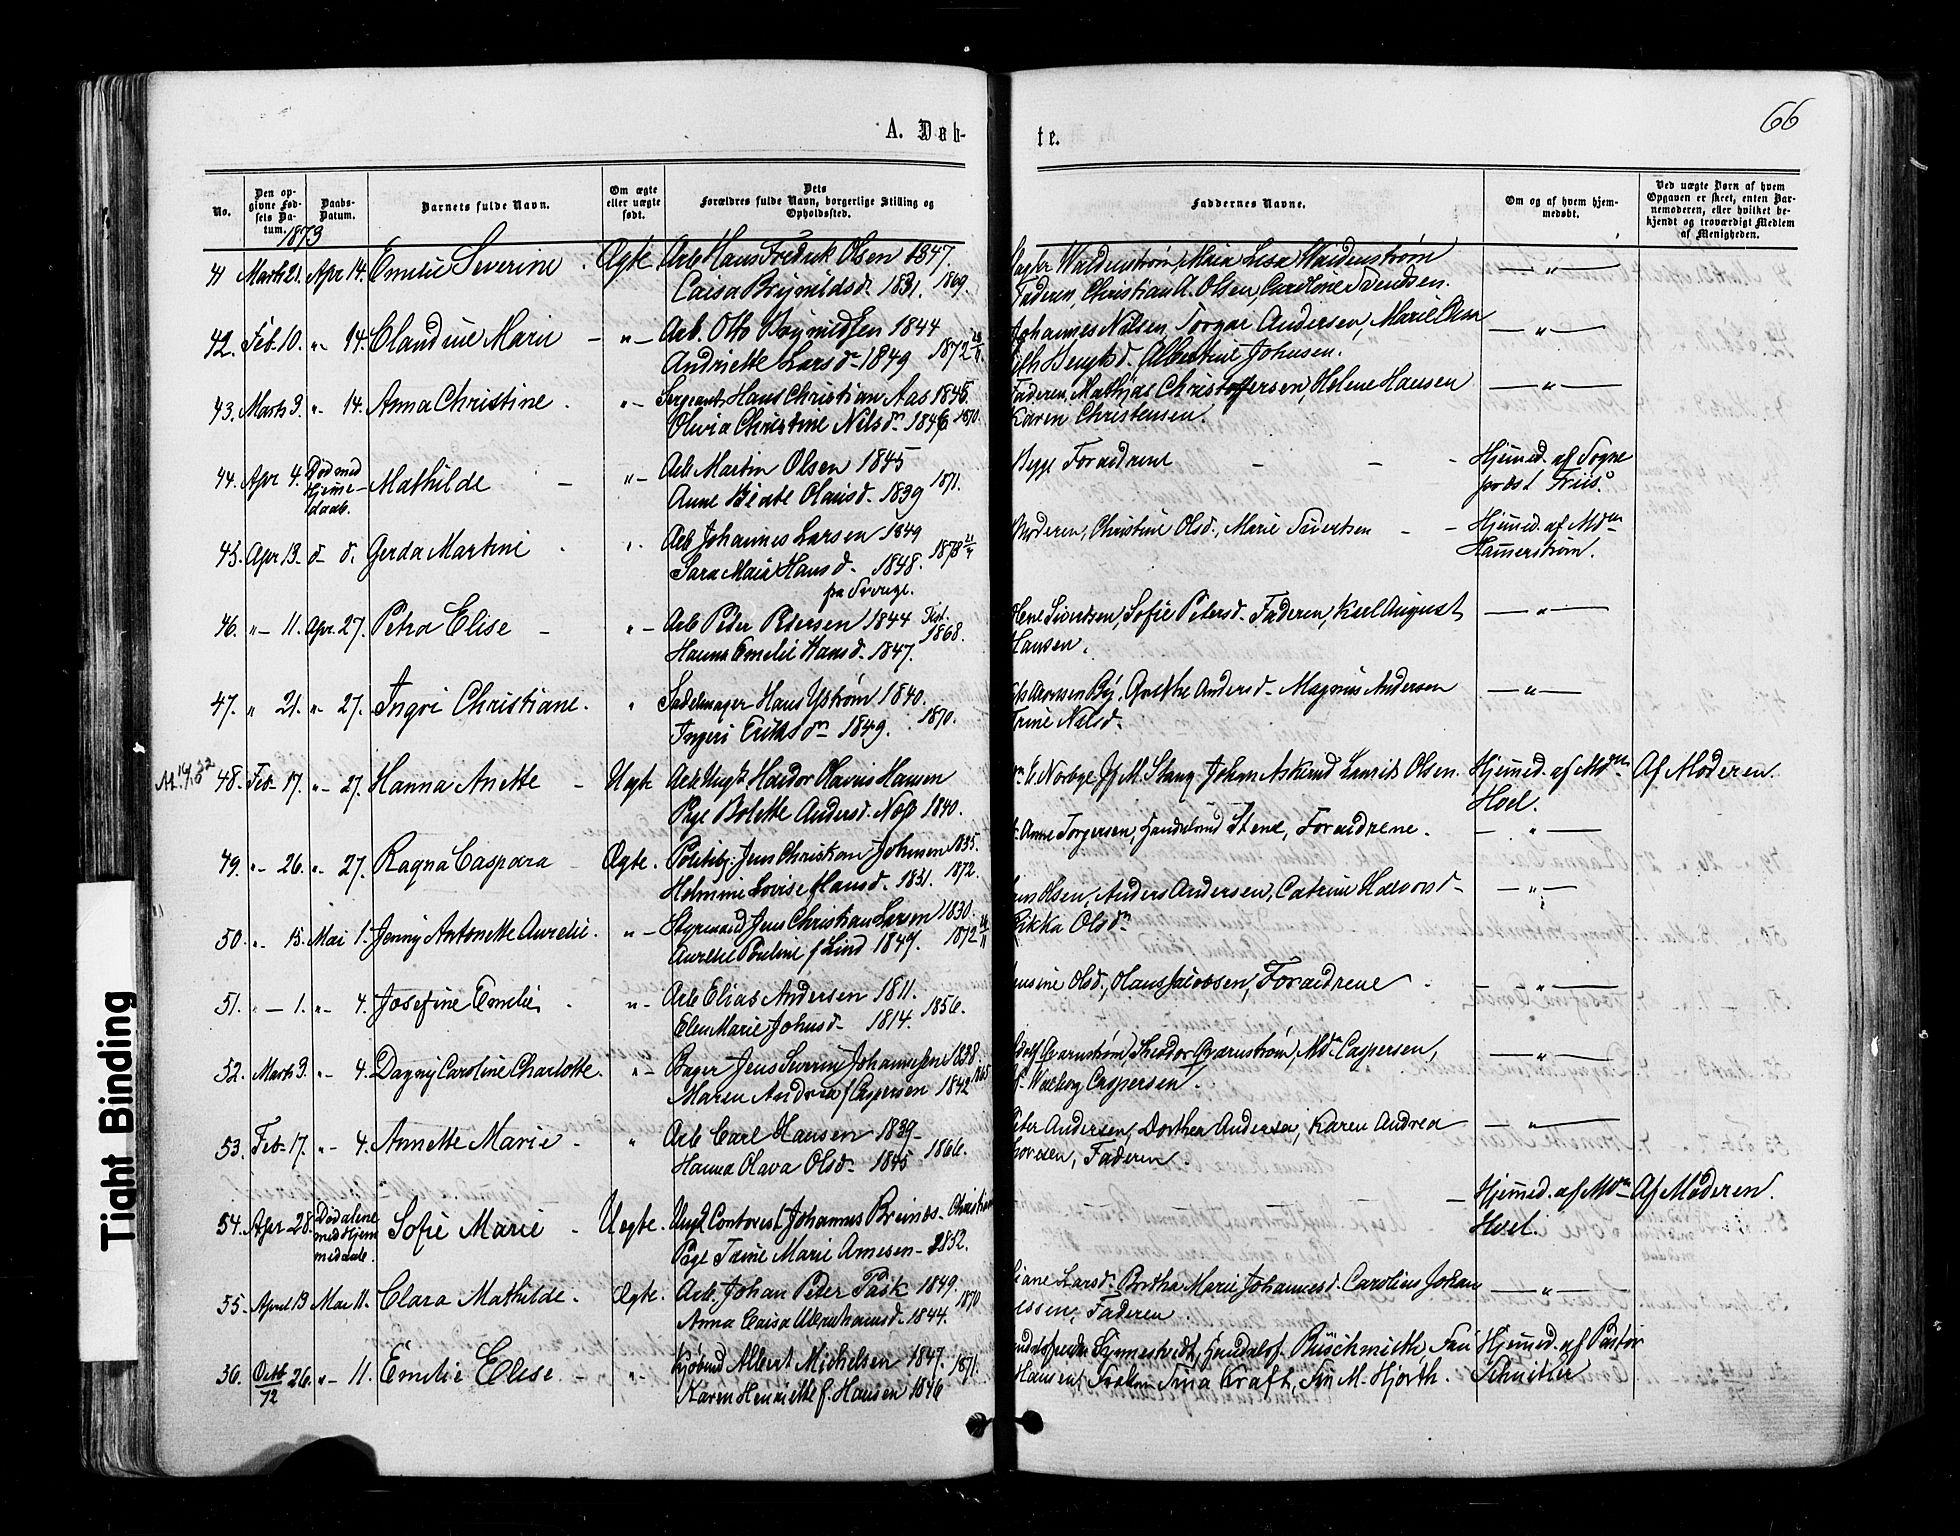 66
A. Døb-
te.
No.
Den op-
givne Fød-
sels Da-
tum.
Daabs-
Datum.
Barnets fulde Navn.
Om ægte
eller uægte
født.
Dets
Forældres fulde Navn, borgerlige Stilling og
Opholdssted.
Faddernes Navne.
Om og af hvem hjem-
medøbt.
Ved uægte Børn af hvem
Opgaven er skeet, enten Bar-
nemoderen, eller hvilket be-
kjendt og troværdigt Medlem
af Menigheden.
1873
41 Marts 21. Apr 14. Emelie Severine. Ægte. Arb Hans Fredrik Olsen 1847.
1831. 1869.
Waldenstrøm, Maia Lisa Waldenstrøm — " —
Faderen, Christian A. Olsen, Caroline Svendsen.
42. Feb. 10. " 14. Claudine Marie - " - Arb. Otto 1844
Andriette Larsd. 1849 1872
Johannes Nilsen, Torger Andersen, Marie — " —
Bengtsd. Albertine Johnsen.
43. Marts 3. " 14. Anna Christine. " - Sergeant Hans Christian Aas 1845.
Olivia Christine Nilsdr 1846. 1870.
Faderen, Mathias Christoffersen, Helene Hansen — " —
Karen Christensen.
44. Apr 4. Død med Hjemme-daab. Mathilde - " - Arb Martin Olsen 1845
Anne Beate Olausd. 1839 1871.
Begge Forældrene - - - Hjemed. af Sogne
provst Friis.
45. Apr 13. d d. Gerda Martine. Arb Johannes Larsen 1849
Sara Maia Hansd. 1848. 1873
fra Sverige.
Moderen, Christine Olsd., Marie Sivertsen - - Hjemed. af Mdm
Hammerstrøm.
46. " - 11. Apr. 27. Petra Elise - " - Arb Peder Pedersen 1844
Hanna Emelie Hansd. 1847. 1868.
Sivertsen, Sofie Petersd. Faderen, Karl August — " —
Hansen.
47. " 21. " 27. Ingri Christiane. " Sadelmager Hans Ystrøm 1840.
Ingeri Eriksdr 1849. 1870.
Aronsen By, Grethe Andersd. Magnus Andersen — " —
Trine Nilsd.
48. Feb 17. " - 27. Hanna Anette - Uægte Arb Ungk Haldor Olavus Hansen
Pige Bolette Andersd. Næs 1840.
Norbye Jf M. Stang, Johan Askerud Laurits Olsen. Hjemed. af Mdm Af Moderen.
Hoel.
49. " - 26. " - 27. Ragna Caspara - Ægte. Politibj. Jens Christian Johnsen 1835.
Helmine Lovise f Hansd. 1831. 1872.
Anne Torgersen, Stene, Forældrene. — " —
50. " 15. Mai 1. Jenny Antonette Aurelie. " - Styrmand Jens Christian Larsen 1830.
Aurelie Pouline f Lind 1847. 1872
Olsen, Anders Andersen, Catrine Halvorsd. — " —
Rikka Olsdr
51. " - 1. " - 4. Josefine Emelie. " - Arb Elias Andersen 1811.
Elen Marie Johnsd. 1814. 1856.
Olsd., Hans Jacobsen, Forældrene — " —
52. Marts 3. " - 4. Dagny Caroline Charlotte. " - Bager Jens Severin Johannesen 1838.
Maren Andrea f Caspersen 1842 1865
Theodor Mda Caspersen, — " —
Valborg Caspersen.
53. Feb 17. " - 4. Annette Marie - " Arb Carl Hansen 1839
Hanna Olava Olsd. 1845 1866.
Peter Andersen, Dorthea Andersen, Karen Andrea — " —
Faderen.
54. Apr 28. Død alene med Hjem-medaab. Sofie Marie - Uægte. Ungk Contorist Johannes
Pige Trine Marie Arnesen - 1852.
Hjemed. af Mdm Af Moderen.
Hoel.
55. April 13 Mai 11. Clara Mathilde. Ægte. Arb. Johan Peter Pask 1849.
Anna Caisa Abrahamsd. 1844. 1870
Larsd. Bertha Marie Johannesd. Carolius Johan — " —
Faderen.
56. Octb 26. " - 11. Emilie Elise. - " - Kjøbmd Albert Michelsen 1847.
72 Karen Henriette f. Hansen 1846 1871.
Synnestvedt, Handelsf. Fru Hjemed. af Pastor
Hansen, Frøken Tina Kraft, Frk M. Hjorth. Schnitler
Tight Binding